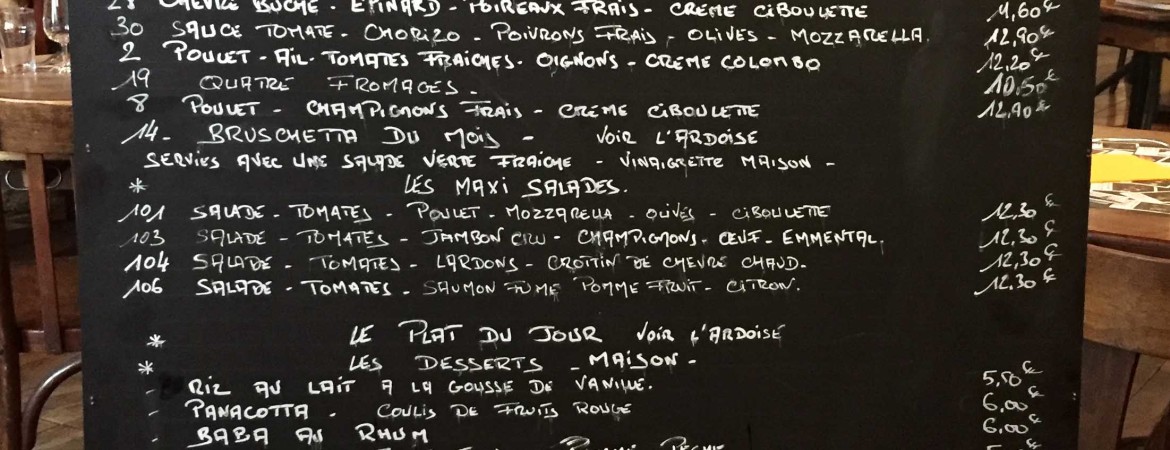 28 CHEVRE BUCHE - EPINARD - POIREAUX FRAIS - CREME CIBOULETTE 11,60€
30 SAUCE TOMATE - CHORIZO - POIVRONS FRAIS - OLIVES - MOZZARELLA. 12,90€
2 POULET - AIL - TOMATES FRAICHES - OIGNONS - CREME COLOMBO 12,20€
19 QUATRE FROMAGES - 10,50€
8 POULET - CHAMPIGNONS FRAIS - CREME CIBOULETTE 12,90€
14 - BRUSCHETTA DU MOIS - VOIR L'ARDOISE
SERVIES AVEC UNE SALADE VERTE FRAICHE - VINAIGRETTE MAISON -
* LES MAXI SALADES.
101 SALADE - TOMATES - POULET - MOZZARELLA - OLIVES - CIBOULETTE 12,30€
103 SALADE - TOMATES - JAMBON CRU - CHAMPIGNONS - OEUF - EMMENTAL 12,30€
104 SALADE - TOMATES - LARDONS - CROTTIN DE CHEVRE CHAUD. 12,30€
106 SALADE - TOMATES - SAUMON FUME POMME FRUIT - CITRON. 12,30€
* LE PLAT DU JOUR VOIR L'ARDOISE
* LES DESSERTS - MAISON -
- RIZ AU LAIT A LA GOUSSE DE VANILLE. 5,50€
- PANACOTTA - COULIS DE FRUITS ROUGE 6,00€
- BABA AU RHUM 6,00€